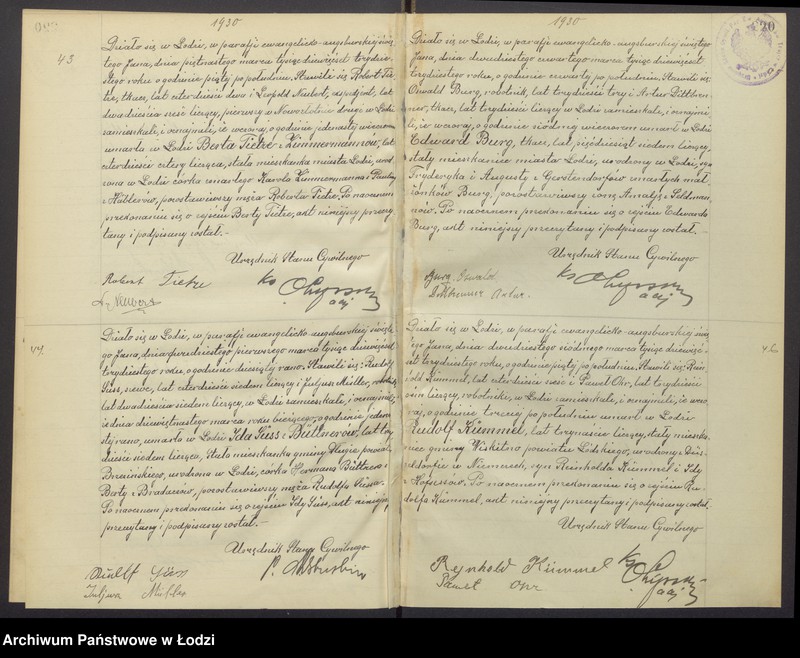 1930
43
Działo się w Łodzi, w parafji ewangelicko-augsburskiej świę-
tego Jana, dnia piętnastego marca tysiąc dziewięćset trzydzie-
stego roku, o godzinie piątej po południu. Stawili się: Robert Tie-
tze, tkacz, lat czterdzieści dwa i Leopold Neubert, lat
dwadzieścia sześć liczący, pierwszy w drugi w Łodzi
zamieszkali, i oznajmili, że wczoraj, o godzinie jedenastej wieczorem
umarła w Łodzi Berta Tietze z Zimmermannów, lat
czterdzieści cztery licząca, stała mieszkanka miasta Łodzi, urod
zona w Łodzi córka zmarłego Karola Zimmermanna i Pauliny
z Hüblerów, pozostawiwszy męża Roberta Tietze. Po naocznem
przekonaniu się o zejściu Berty Tietze, akt niniejszy przeczy-
tany i podpisany został.-
Urzędnik Stanu Cywilnego
Robert Tietze
L. Neubert
44.
Działo się w Łodzi, w parafji ewangelicko-augsburskiej święte-
go Jana, dnia dwudziestego pierwszego marca tysiąc dziewięćset
trzydziestego roku, o godzinie dziesiątej rano. Stawili się: Rudolf
Süss, lat czterdzieści siedem liczący i Juljusz Müller, robotnik,
lat dwadzieścia siedem liczący, w Łodzi zamieszkali, i oznajmili,
że dnia dziewiętnastego marca roku bieżącego, o godzinie jedena-
stej rano, umarła w Łodzi Ida Süss z Büttnerów, lat trzy-
dzieści siedem licząca, stała mieszkanka gminy powiatu
Brzezińskiego, urodzona w Łodzi, córka Hermana Büttnera i
Berty z pozostawiwszy męża Rudolfa Süssa.
Po naocznem przekonaniu się o zejściu Idy Süss, akt niniejszy
przeczytany i podpisany został.-
Urzędnik Stanu Cywilnego
Rudolf Süss
Juljusz Müller
1930
Działo się w Łodzi, w parafji ewangelicko-augsburskiej świętego
Jana, dnia dwudziestego czwartego marca tysiąc dziewięćset
trzydziestego roku, o godzinie czwartej po południu. Stawili się:
Oswald Burg, robotnik, lat trzydzieści trzy i Artur Dittbren-
ner, tkacz, lat trzydzieści liczący w Łodzi zamieszkali, i oznajmi-
li, że wczoraj, o godzinie siódmej wieczorem umarł w Łodzi
Edward Burg, tkacz, lat pięćdziesiąt siedem liczący,
stały mieszkaniec miasta Łodzi, urodzony w Łodzi, syn
Fryderyka i Augusty z Gerstendorfów zmarłych mał-
żonków Burg, pozostawiwszy żonę Amalję z
Po naocznem przekonaniu się o zejściu Edwarda
Burg, akt niniejszy przeczytany i podpisany został.-
Urzędnik Stanu Cywilnego
Burg Oswald
Dittbrenner Artur.
46
Działo się w Łodzi, w parafji ewangelicko-augsburskiej święte-
go Jana, dnia dwudziestego siódmego marca tysiąc dziewięć-
set trzydziestego roku, o godzinie piątej po południu. Stawili się: Rein-
hold Kümmel, lat czterdzieści sześć i Paweł Ohr, lat trzydzieści
osiem liczący, robotnicy, w Łodzi zamieszkali, i oznajmili, że wczo-
raj, o godzinie trzeciej po południu umarł w Łodzi
Rudolf Kümmel, lat trzynaście liczący, stały mieszka-
niec gminy Wiskitno powiatu Łódzkiego, urodzony w Düs-
seldorfie w Niemczech, syn Reinholda Kümmel i Idy
z Po naocznem przekonaniu się o zejściu Ru-
dolfa Kümmel, akt niniejszy przeczytany i podpisany został.
Urzędnik Stanu Cywilnego
Rejnhold Kümmel
Paweł Ohr
Archiwum Państwowe w Łodzi